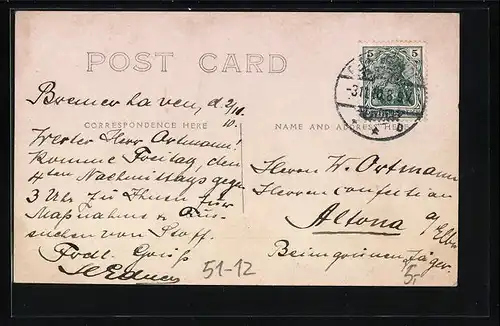 POST CARD
5 5
-3.11.10.
Bremerhaven, d. 2/11.
10.
CORRESPONDENCE HERE
NAME AND ADDRESS HERE
Werter Herr Ortmann!
Komme Freitag, den
4ten Nachmittags gegen
3 Uhr zu Ihnen zur
Maßnahme & Aus-
suchen von Stoff.
Frdl. Gruß
Herrn W. Ortmann
Herren confection
Altona a/Elbe
Beim grünen Jäger.
51-12
5,